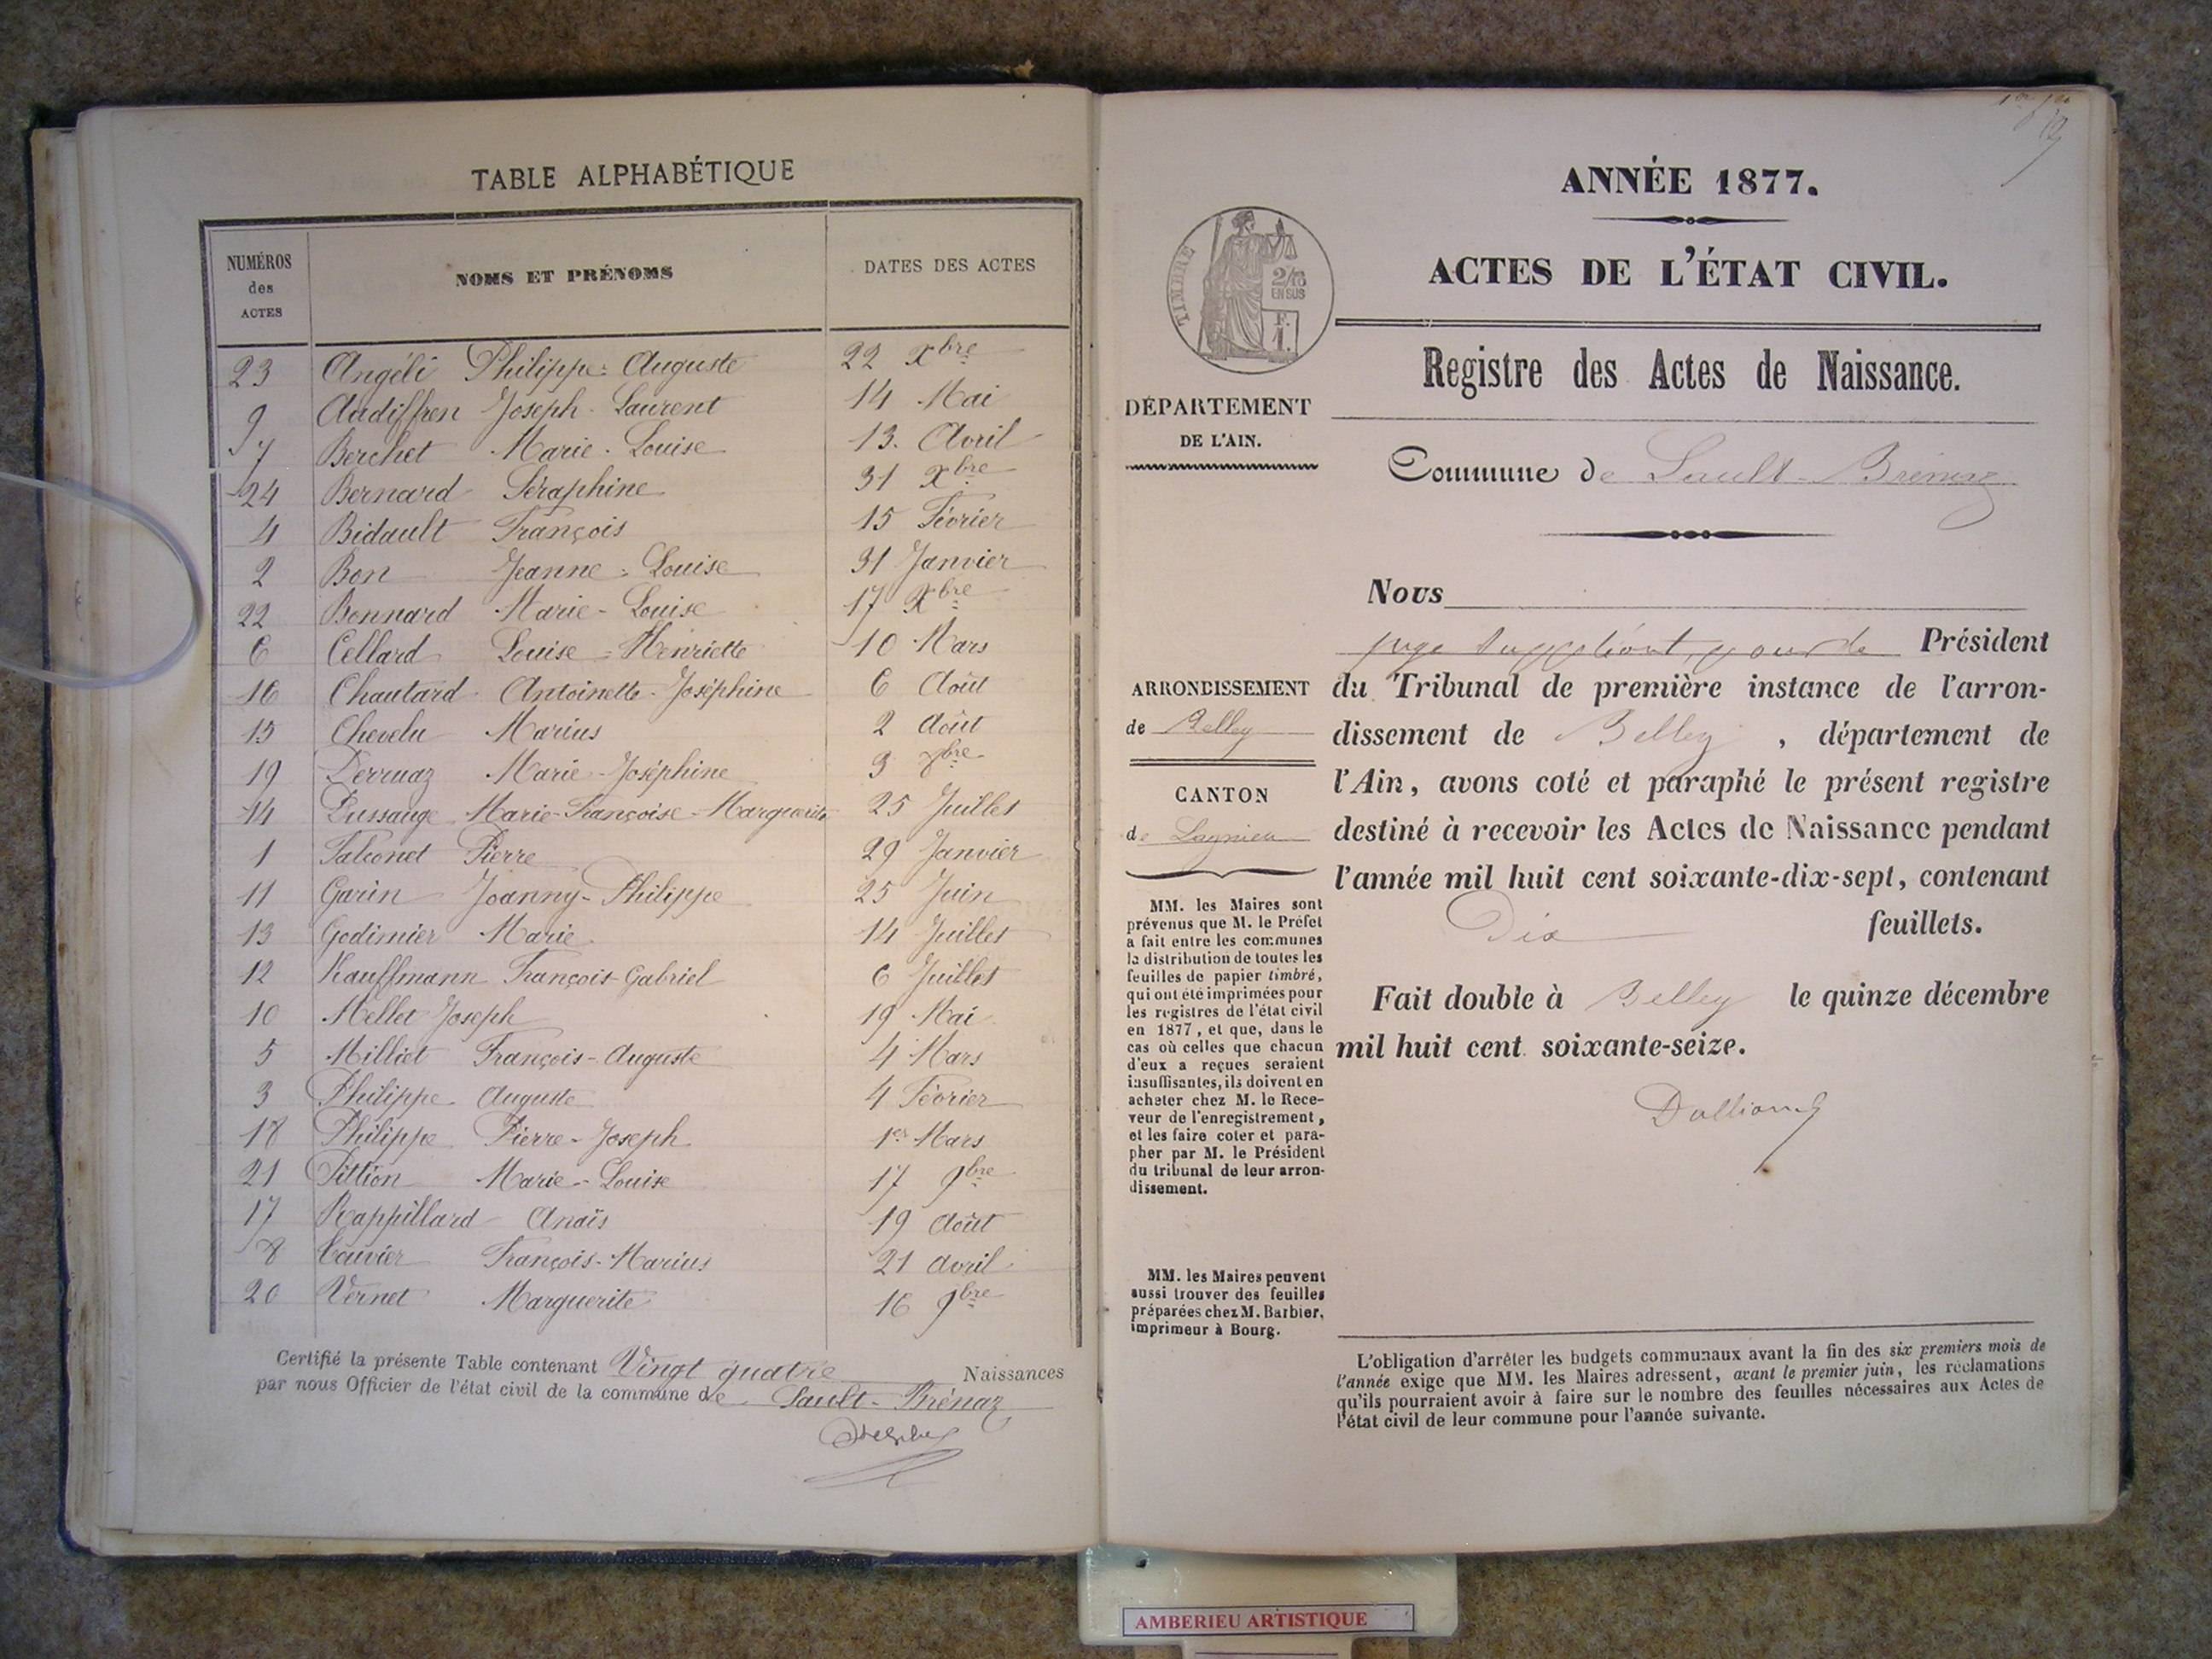 TABLE ALPHABÉTIQUE
NUMÉROS des ACTES NOMS ET PRÉNOMS DATES DES ACTES
23 Angéli Philippe-Auguste 22 Xbre
9 Audiffren Joseph-Laurent 14 Mai
7 Berchet Marie-Louise 13 Avril
24 Bernard Séraphine 31 Xbre
4 Bidault François 15 Février
2 Bon Jeanne-Louise 31 Janvier
22 Bonnard Marie-Louise 17 Xbre
6 Cellard Louise-Henriette 10 Mars
16 Chautard Antoinette-Joséphine 6 Août
15 Chevelu Marius 2 Août
19 Derruaz Marie-Joséphine 3 8bre
14 Dussauge Marie-Françoise-Marguerite 25 Juillet
1 Falconet Pierre 29 Janvier
11 Garin Joanny-Philippe 25 Juin
13 Godimier Marie 14 Juillet
12 Kauffmann François-Gabriel 6 Juillet
10 Mellet Joseph 19 Mai
5 Milliot François-Auguste 4 Mars
3 Philippe Auguste 4 Février
18 Philippe Pierre-Joseph 1er Mars
21 Pittion Marie-Louise 17 9bre
17 Rappillard Anaïs 19 Août
8 François-Marius 21 Avril
20 Vernet Marguerite 16 9bre
Certifié la présente Table contenant Vingt quatre Naissances
par nous Officier de l'état civil de la commune de Sault-Brénaz
ANNÉE 1877.
ACTES DE L'ÉTAT CIVIL.
TIMBRE
2/10
EN SUS
F.
1.
Registre des Actes de Naissance.
DÉPARTEMENT
DE L'AIN.
Commune de Sault-Brénaz
Nous
juge suppléant, pour le Président
ARRONDISSEMENT
de Belley
CANTON
de Lagnieu
du Tribunal de première instance de l'arron-
dissement de Belley, département de
l'Ain, avons coté et paraphé le présent registre
destiné à recevoir les Actes de Naissance pendant
l'année mil huit cent soixante-dix-sept, contenant
Dix feuillets.
Fait double à Belley le quinze décembre
mil huit cent soixante-seize.
MM. les Maires sont
prévenus que M. le Préfet
a fait entre les communes
la distribution de toutes les
feuilles de papier timbré,
qui ont été imprimées pour
les registres de l'état civil
en 1877, et que, dans le
cas où celles que chacun
d'eux a reçues seraient
insuffisantes, ils doivent en
acheter chez M. le Rece-
veur de l'enregistrement,
et les faire coter et para-
pher par M. le Président
du tribunal de leur arron-
dissement.
MM. les Maires peuvent
aussi trouver des feuilles
préparées chez M. Barbier,
imprimeur à Bourg.
L'obligation d'arrêter les budgets communaux avant la fin des six premiers mois de
l'année exige que MM. les Maires adressent, avant le premier juin, les réclamations
qu'ils pourraient avoir à faire sur le nombre des feuilles nécessaires aux Actes de
l'état civil de leur commune pour l'année suivante.
AMBERIEU ARTISTIQUE